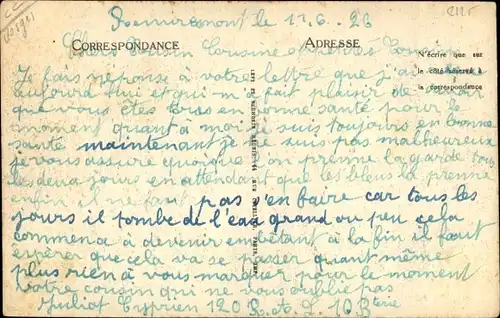 Remiremont le 11.6.26
Chers Cousin Cousine et
CORRESPONDANCE
ADRESSE
N'écrire que sur
le côté réservé à
la correspondance
Je fais réponse à votre lettre que j'ai
aujourd'hui et qui m'a fait plaisir de savoir
que vous êtes tous en bonne santé pour le
moment quant à moi je suis toujours en bonne
santé maintenant je ne suis pas malheureux
je vous assure quoique l'on prenne la garde tous
les deux jours en attendant que les bleus la prenne
enfin il ne faut pas s'en faire car tous les
jours il tombe de l'eau grand ou peu cela
commence à devenir embêtant à la fin il faut
espérer que cela va se passer quant même
plus rien à vous marquer pour le moment
votre cousin qui ne vous oublie pas
Cyprien 120 R.A.L. 10 Bterie